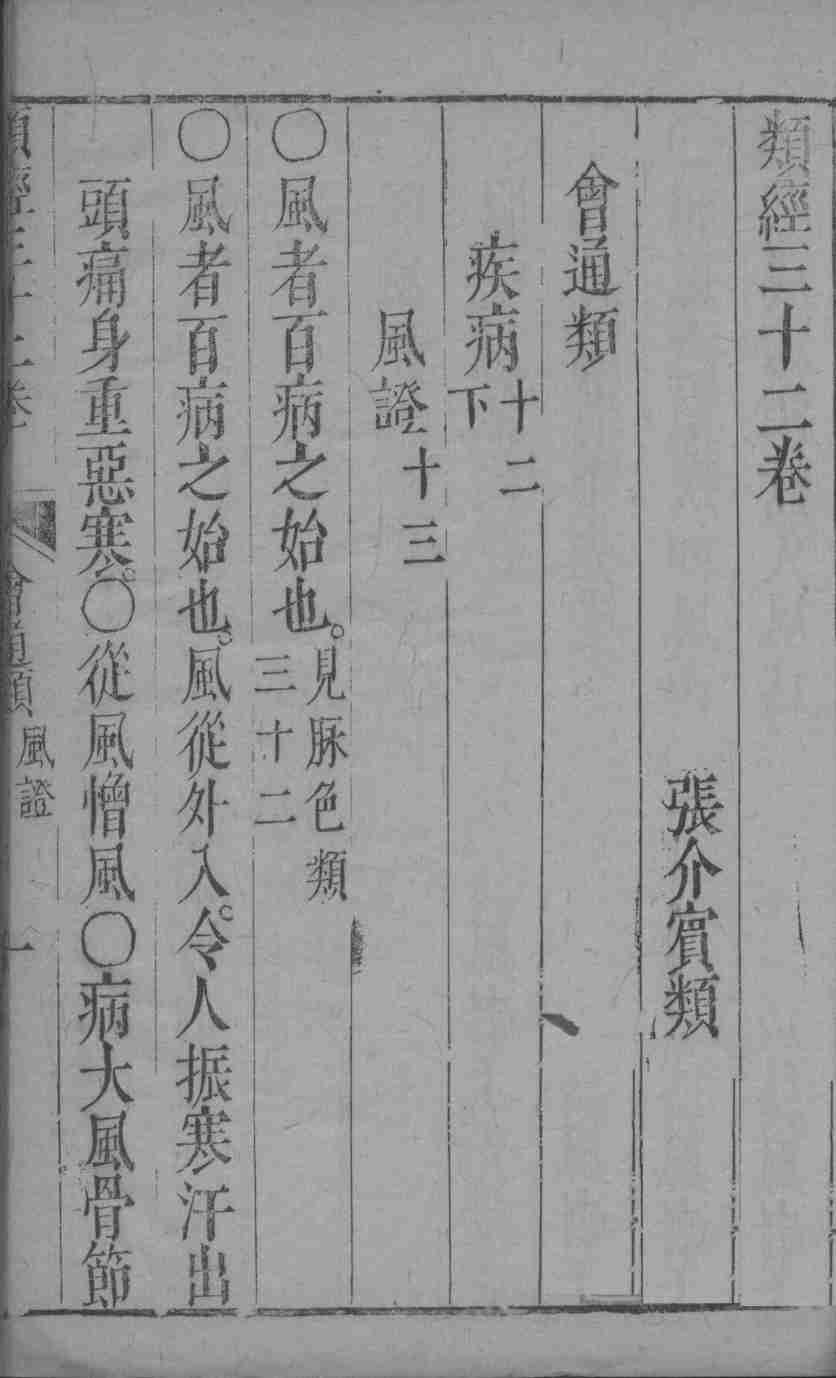 類經三十二卷
張介賓類
會通類
疾病十二下
風證十三
〇風者百病之始也。見脉色類三十二
〇風者百病之始也。風從外入。令人振寒汗出
頭痛身重惡寒。〇從風憎風〇病大風骨節
類經三十二卷 會通類 風證 一